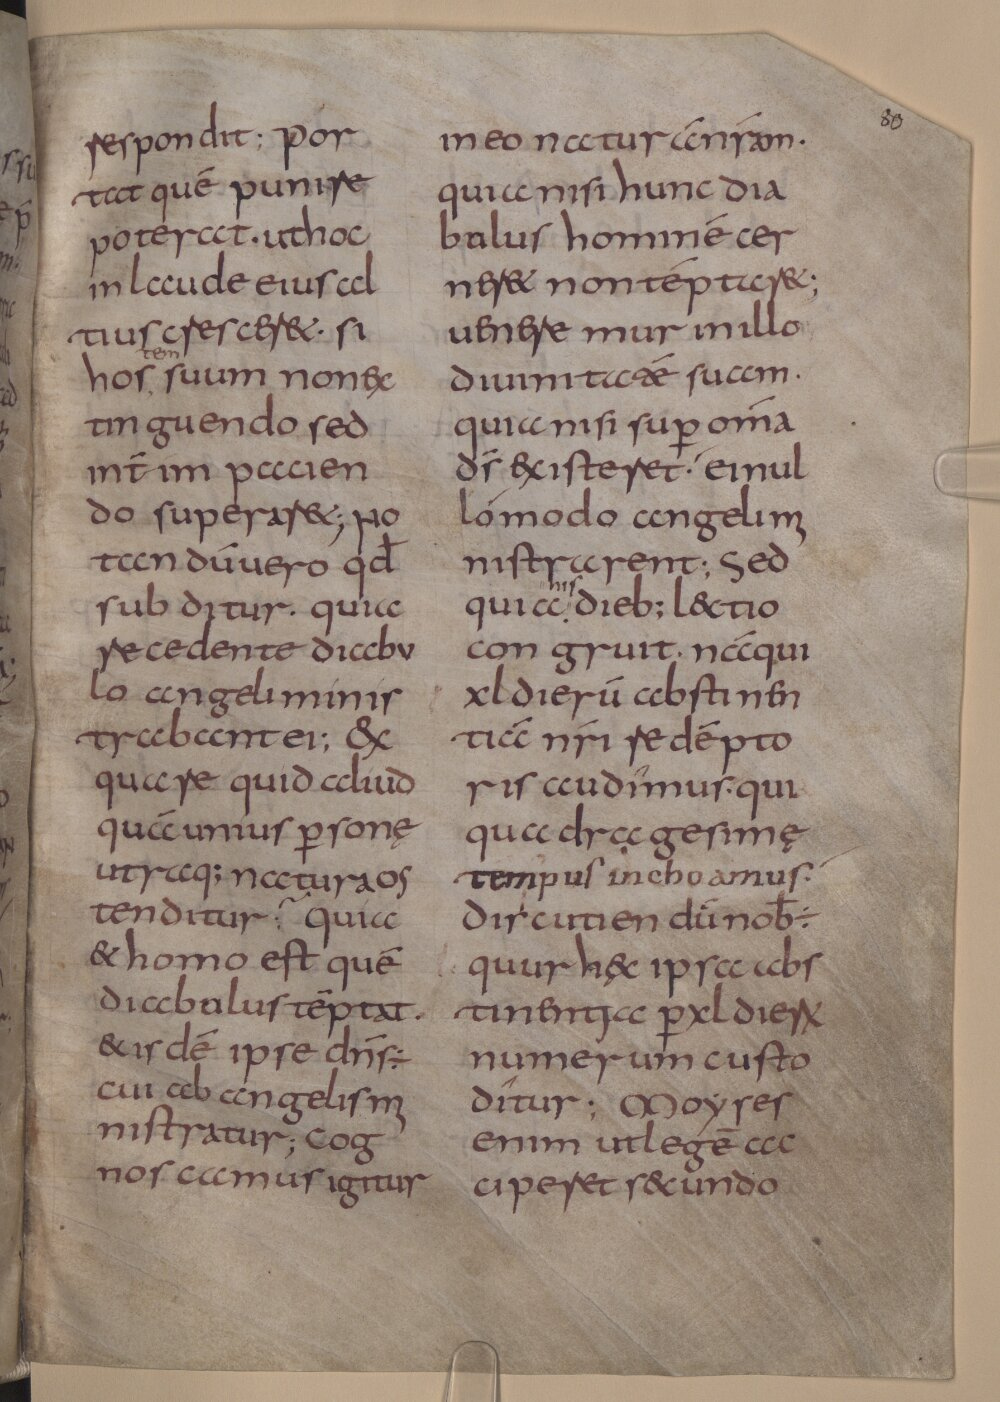 80
respondit; Por
tat quē punire
poterat. ut hoc
in laude eius al
tius cresceret. si
tem
hos suum non ex
tinguendo sed
int̄im pacien
do superaret; No
tandū vero qđ
subditur. quia
recedente diabu
lo angeli minis
trabant ei; Ex
qua re quid aliud
quā unius p̱sonę
utraq; natura os
tenditur. quia
& homo est quē
diabulus tēptat.
& isdē ipse dn̄s÷
cui ab angelis m
nistratur; Cog
noscamus igitur
in eo naturā nr̄am.
quia nisi hunc dia
bulus hominē cer
neret non tēptaret;
ueneremur in illo
diuinitatē suam.
quia nisi sup̱ om̄a
dš existeret. ei nul
lo modo angeli m
nistrarent; Sed
his
quia dieb; lectio
congruit. nā qui
xl dierū abstinen
tiā nr̄i redēpto
ris audimus. qui
quadragesimę
tempus inchoamus.
discutiendū nob̄÷
quur hęc ipsa abs
tinentia p̱ xl dierum
numerum custo
ditur; Moyses
enim ut legē ac
ciperet secundo